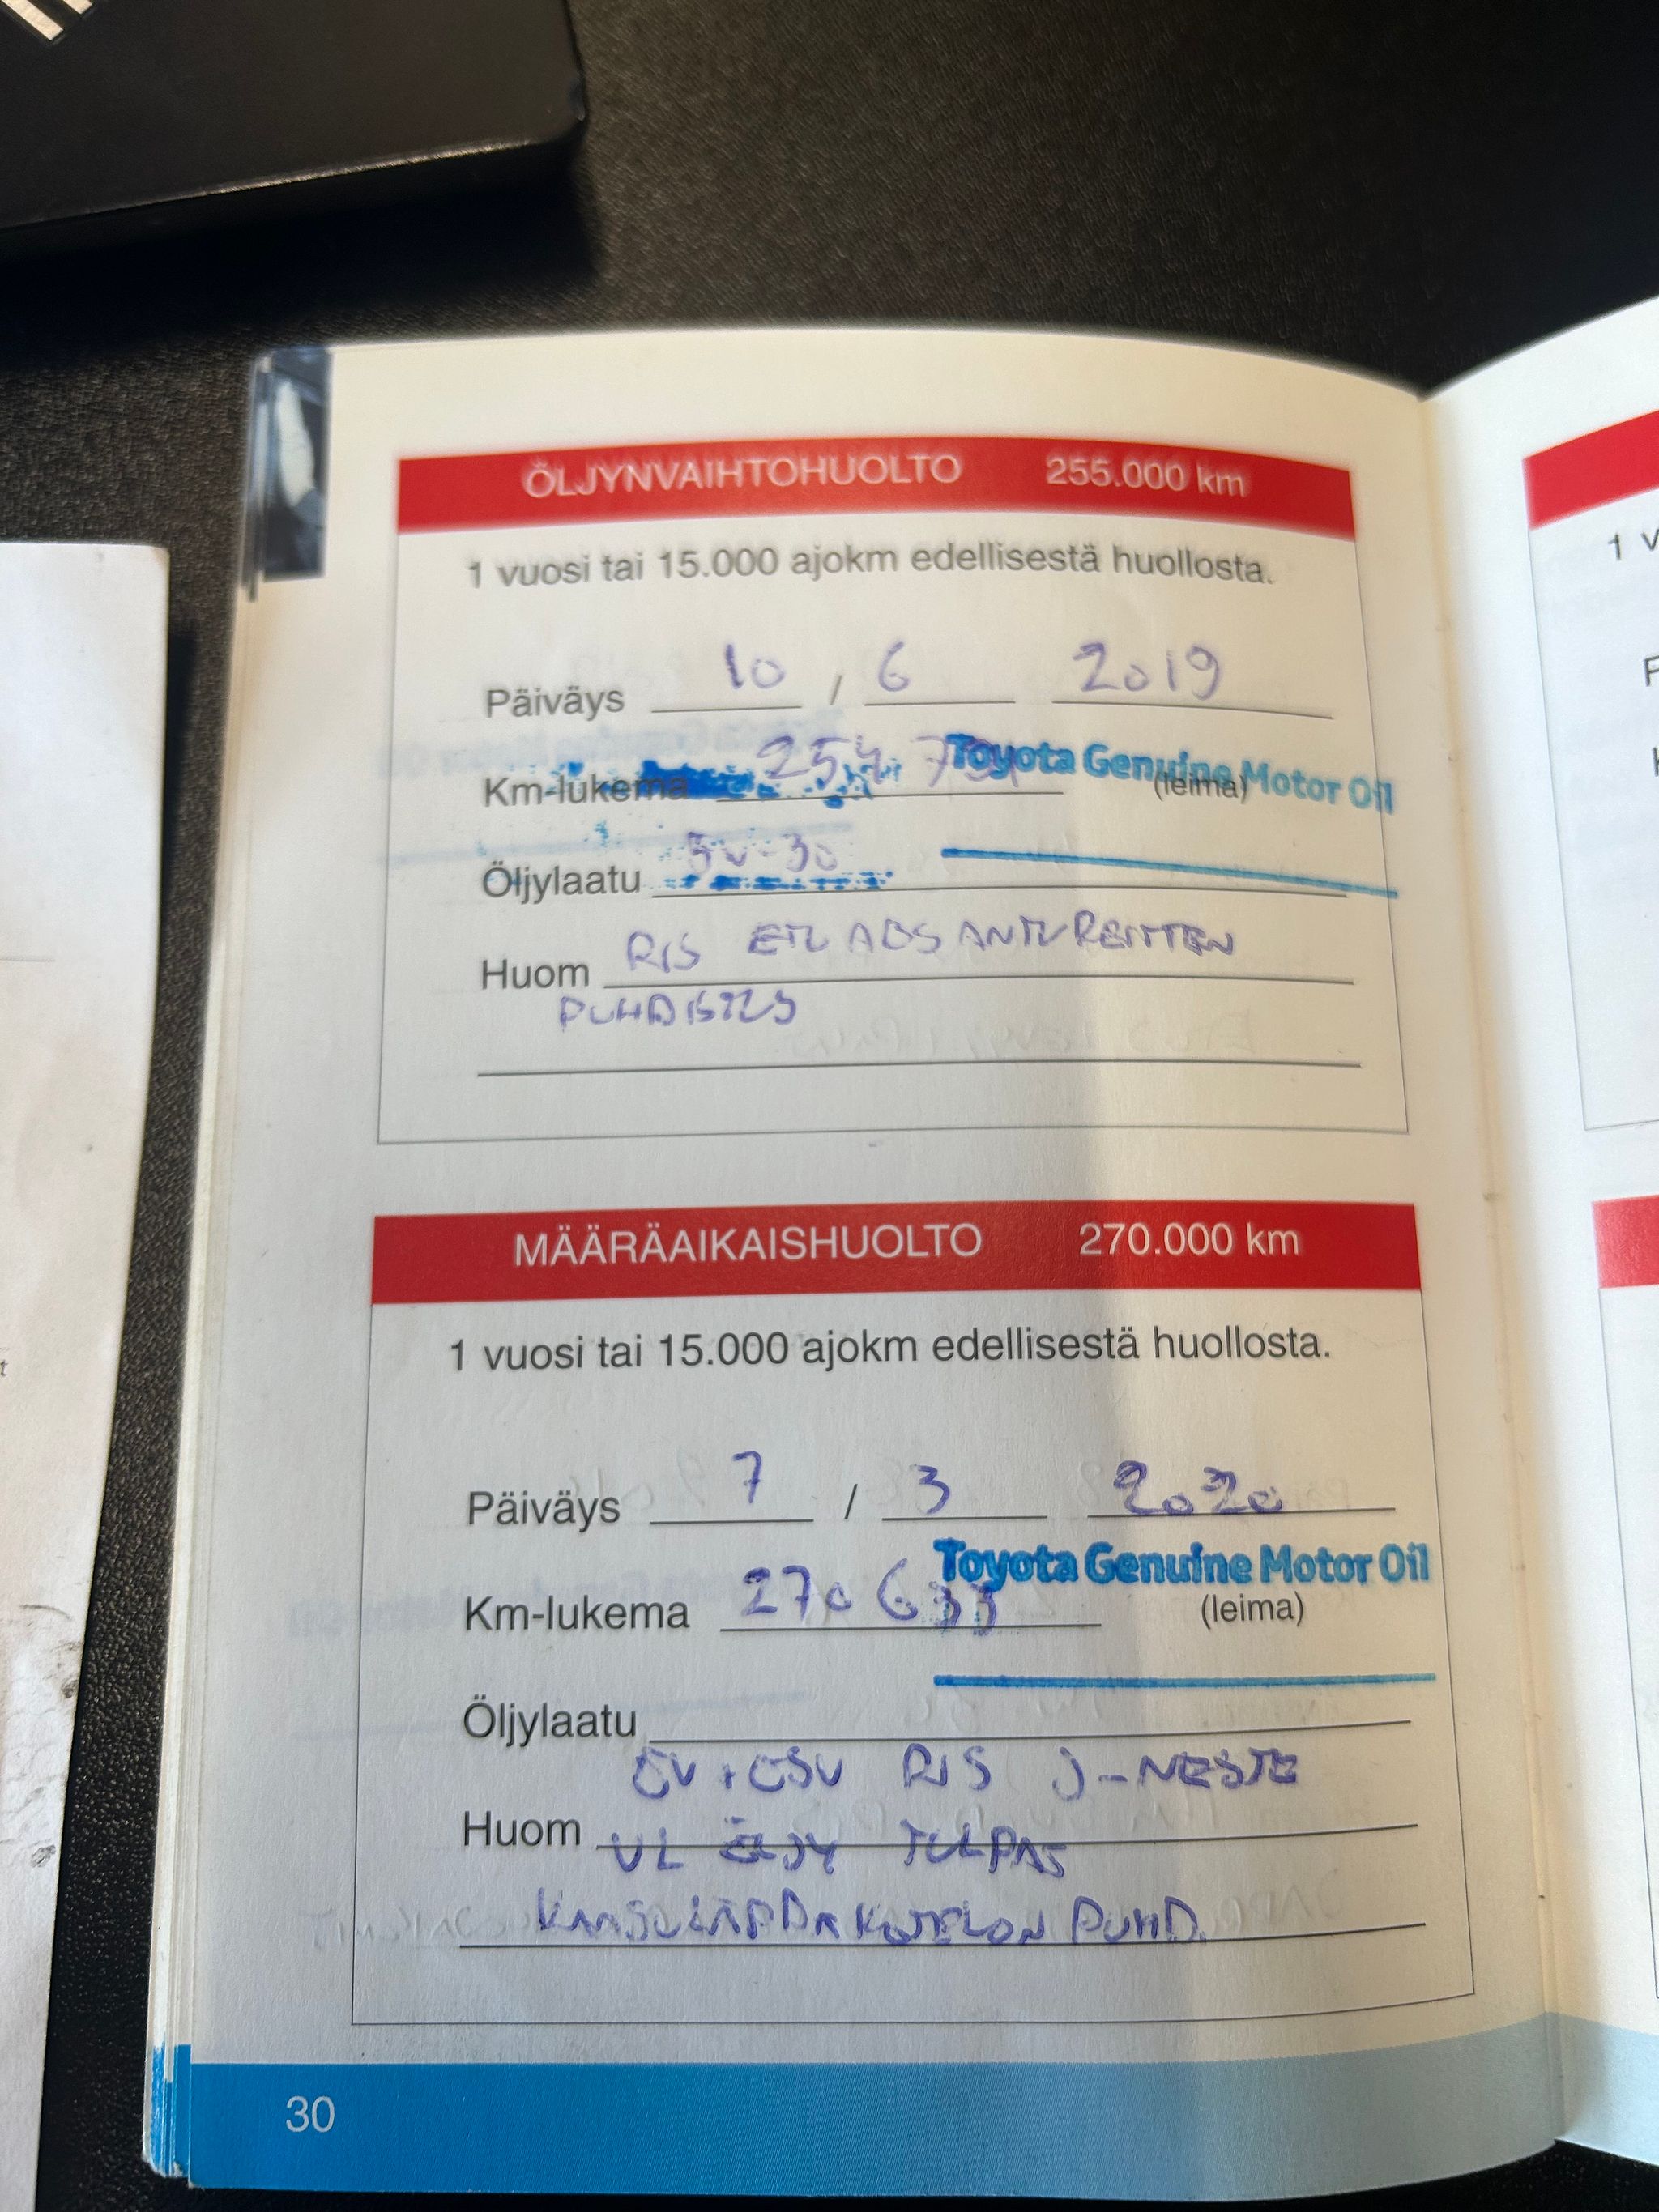 ÖLJYNVAIHTOHUOLTO 255.000 km
1 vuosi tai 15.000 ajokm edellisestä huollosta.
Päiväys 10 / 6 2019
Km-lukema 254 Toyota Genuine Motor Oil
(leima)
Öljylaatu 5W-30
Huom RIS ETU ABS ANTUREITTEN
PUHDISTUS
MÄÄRÄAIKAISHUOLTO 270.000 km
1 vuosi tai 15.000 ajokm edellisestä huollosta.
Päiväys 7 / 3 2020
Toyota Genuine Motor Oil
Km-lukema 270 633 (leima)
Öljylaatu
RIS J-NESTE
Huom ÖLJY TULPAT
KOTELON PUHD.
1 v
30